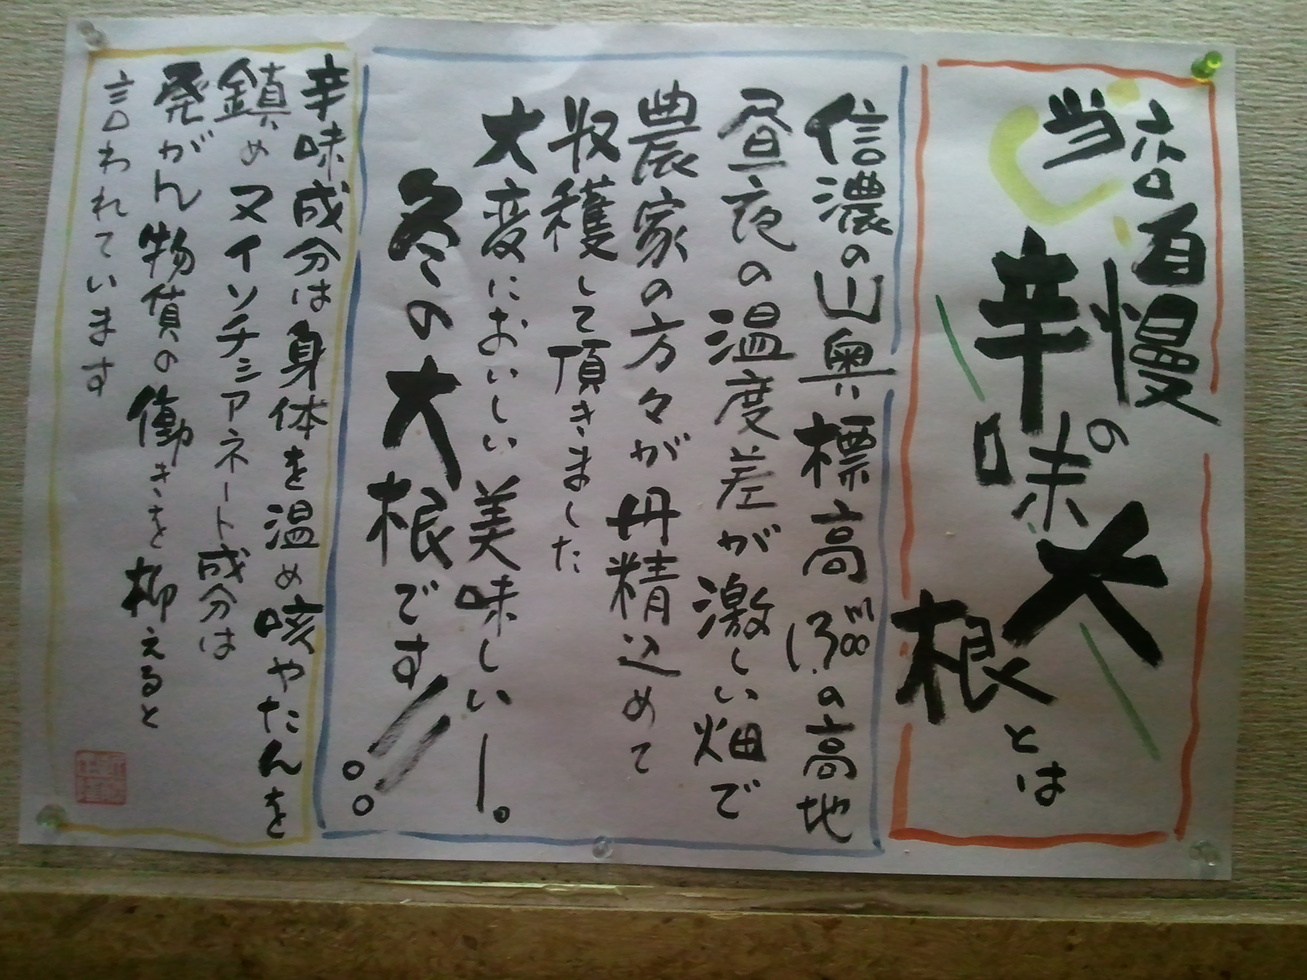 当店自慢の
辛味大根とは
信濃の山奥標高1,300mの高地
昼夜の温度差が激しい畑で
農家の方々が丹精込めて
収穫して頂きました
大変においしい美味しいー。
冬の大根です!!
辛味成分は身体を温め咳やたんを
鎮め又イソチシアネート成分は
発がん物質の働きを抑えると
言われています